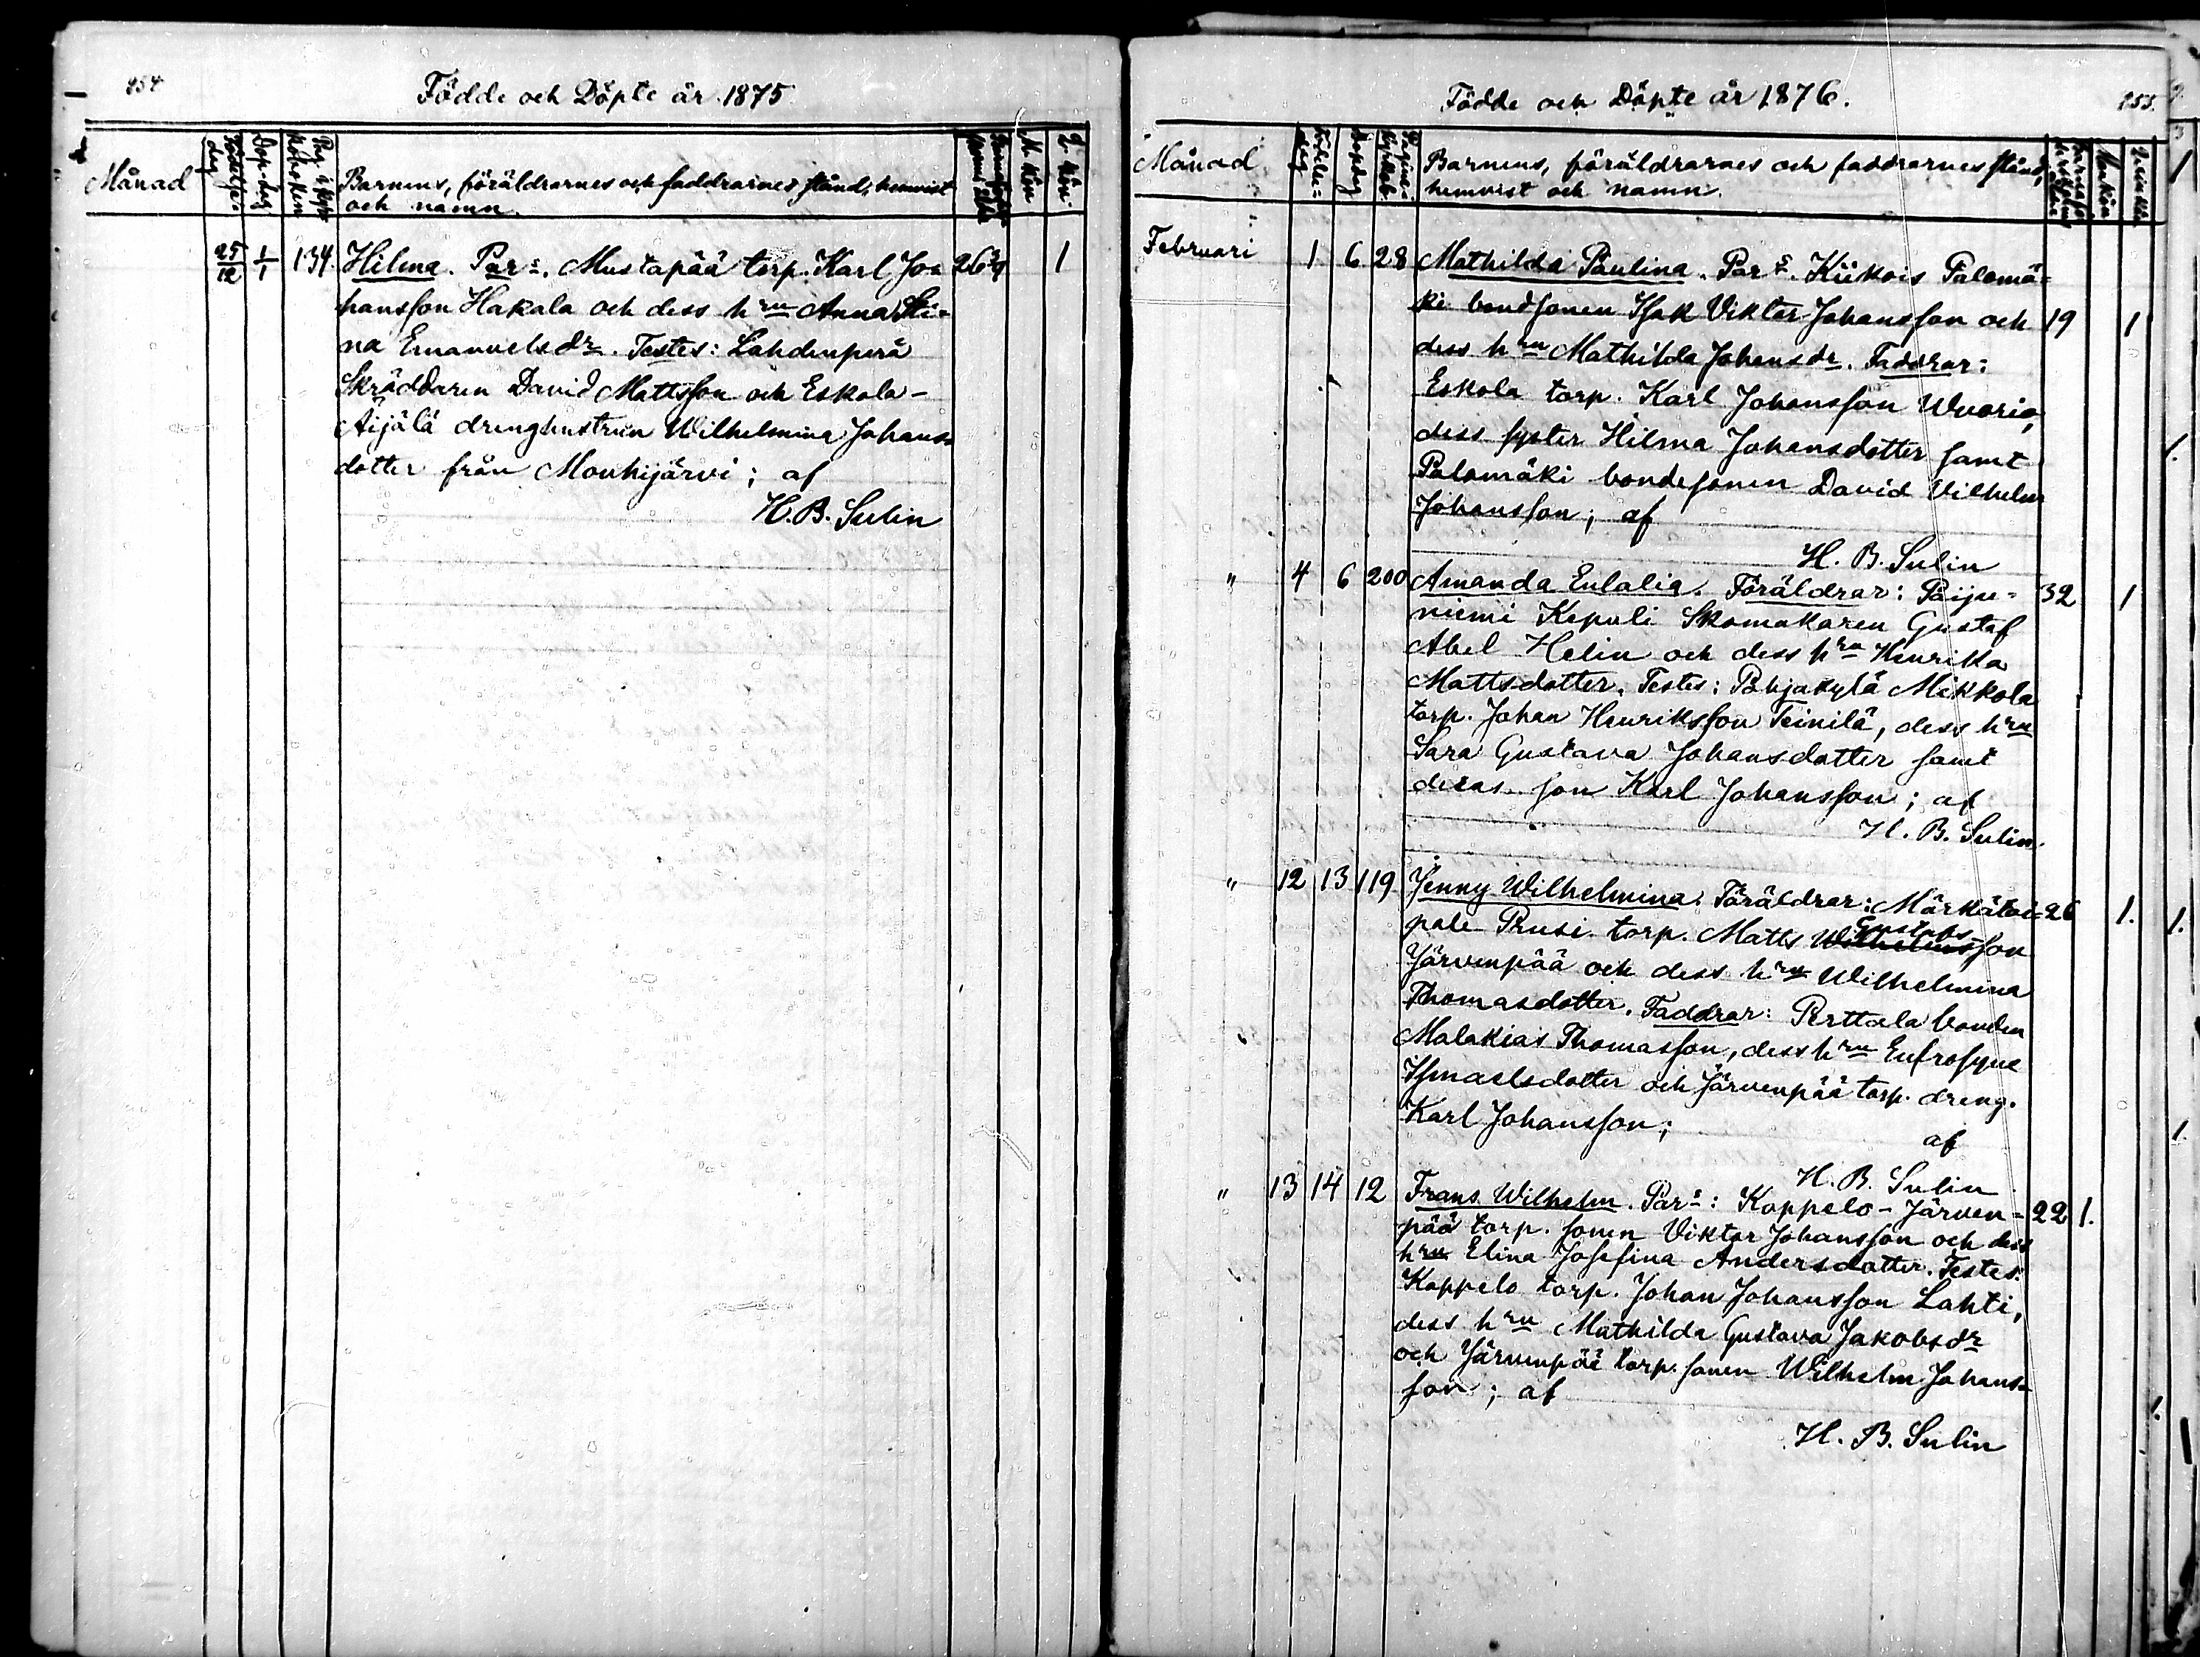 454
Födde och Döpte år 1875
Månad
Födelse-
dag
Dop-dag
Pag. i Kyrk
boken
Barnens, föräldrarnes och faddrarnes stånd, hemvist
och namn.
M. kön
Q. kön
25/12 1/1 134 Hilma. Par:s. Mustapää torp. Karl Jo- 26 1
hansson Hakala och dess hru Anna Sti-
na Emanuelsdr. Testes: Lahdenperä
Skräddaren David Mattsson och Eskola-
Äijälä drenghustrun Wilhelmina Johans-
dotter från Mouhijärvi; af
H. B. Sulin
Födde och Döpte år 1876.
455.
Månad
Födelse-
dag
Dopdag
Barnens, föräldrarnes och faddrarnes stånd,
hemvist och namn.
Mankön
Qvinkön
Februari 1 6 28 Mathilda Paulina. Par:s. Kiikois Palomä-
ki bondsonen Isak Viktor Johansson och 19 1
dess hru Mathilda Johansdr. Faddrar:
Eskola torp. Karl Johansson Wuorio,
dess syster Hilma Johansdotter samt
Palomäki bondesonen David Vilhelm
Johansson; af
H. B. Sulin
" 4 6 200 Amanda Eulalia. Föräldrar: Päipe- 32 1
niemi Kepuli Skomakaren Gustaf
Abel Helin och dess hru Henrika
Mattsdotter. Testes: Pohjakylä Mikkola
torp. Johan Henriksson Teinilä, dess hru
Sara Gustava Johansdotter samt
deras son Karl Johansson; af
H. B. Sulin.
" 12 13 119 Jenny Wilhelmina. Föräldrar: Märkätai- 26 1.
Gustafs-
pale Prusi torp. Matts Wilhelmsson
Järvenpää och dess hru Wilhelmina
Thomasdotter. Faddrar: Perttala bonden
Malakias Thomasson, dess hru Eufrosyne
Ismaelsdotter och Järvenpää torp. dreng.
Karl Johansson;
af
H. B. Sulin
" 13 14 12 Frans Wilhelm. Par:s: Koppelo-Järven- 22 1.
pää torp. sonen Viktor Johansson och dess
hru Elina Josefina Andersdotter. Testes:
Koppelo torp. Johan Johansson Lahti,
dess hru Mathilda Gustava Jakobsdr
och Järvenpää torp. sonen Wilhelm Johans-
son; af
H. B. Sulin